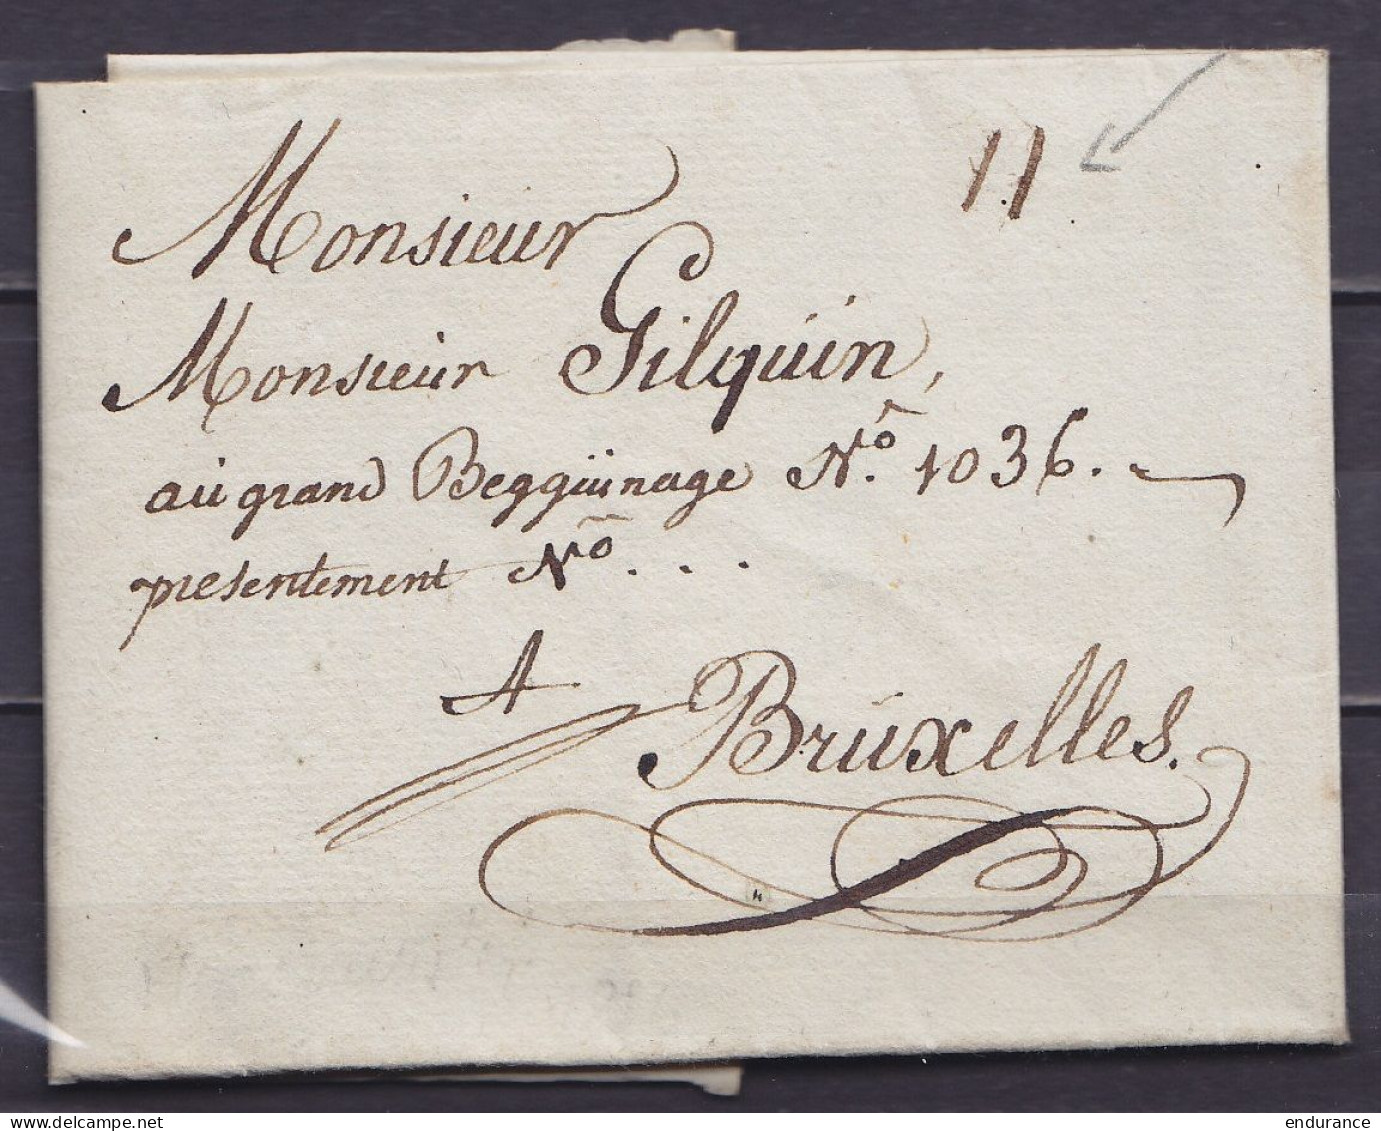 11
Monsieur
Monsieur Gilquin,
au grand Beggüinage N.º 1036.
presentement Nº. . . .
A
Bruxelles.
endurance